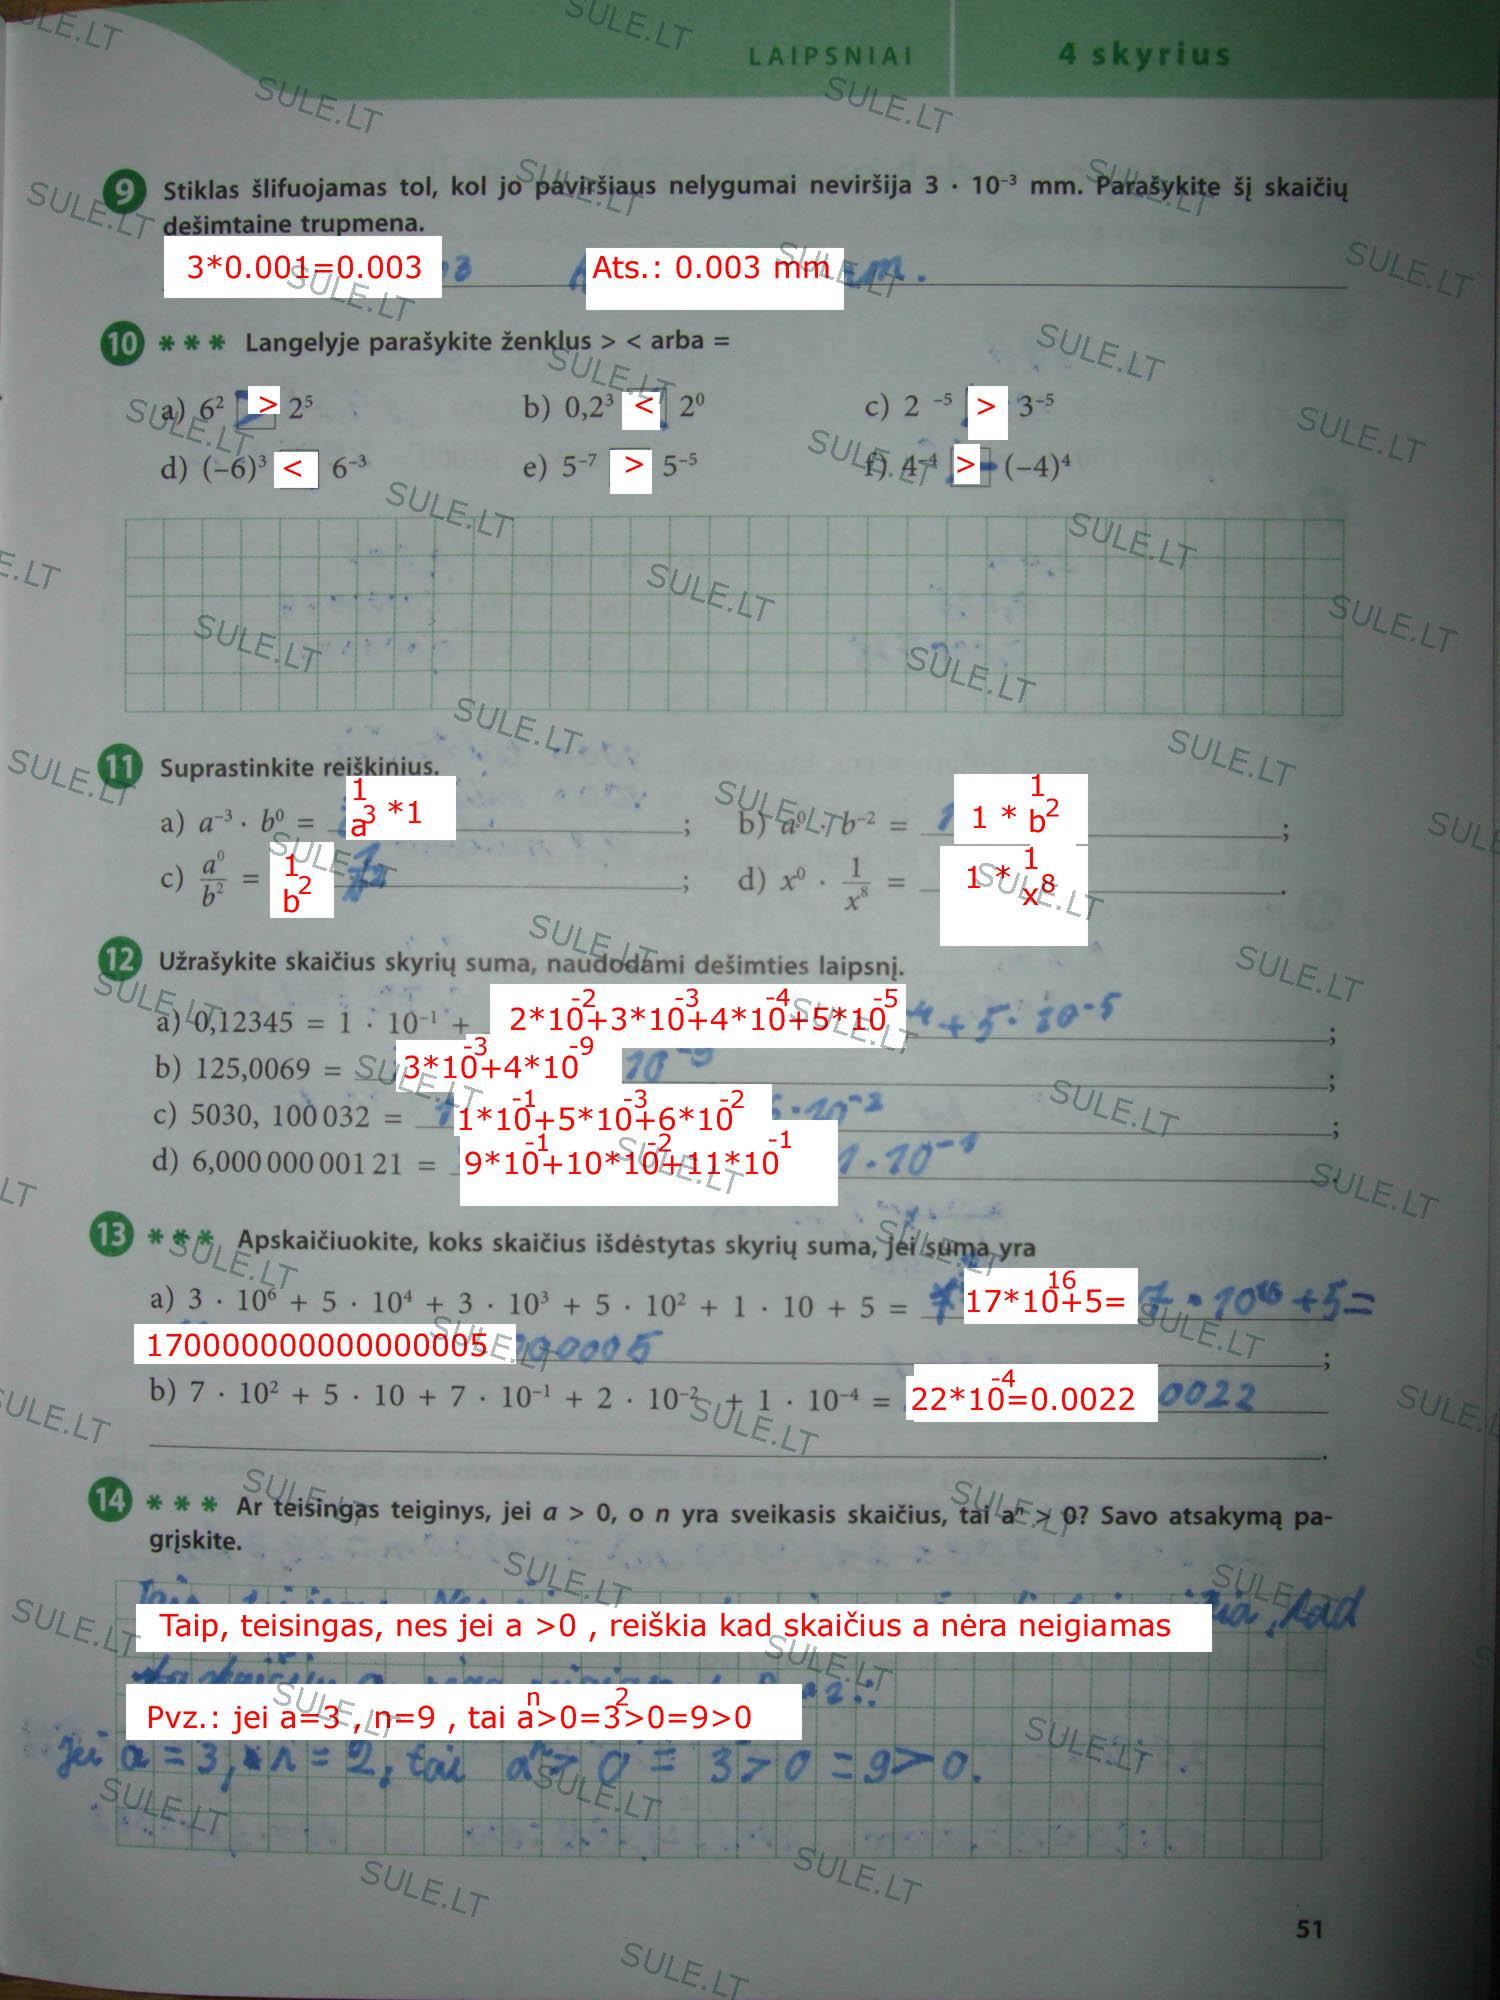 LAIPSNIAI 4 skyrius
9 Stiklas šlifuojamas tol, kol jo paviršiaus nelygumai neviršija 3 · 10⁻³ mm. Parašykite šį skaičių
dešimtaine trupmena.
3*0.001=0.003 Ats.: 0.003 mm
10 *** Langelyje parašykite ženklus > < arba =
a) 6² > 2⁵ b) 0,2³ < 2⁰ c) 2 ⁻⁵ > 3⁻⁵
d) (−6)³ < 6⁻³ e) 5⁻⁷ > 5⁻⁵ f) 4⁻⁴ > (−4)⁴
11 Suprastinkite reiškinius.
a) a⁻³ · b⁰ = 1/a³ *1 ; b) a⁰ · b⁻² = 1 * 1/b² ;
c) a⁰/b² = 1/b² ; d) x⁰ · 1/x⁸ = 1 * 1/x⁸ .
12 Užrašykite skaičius skyrių suma, naudodami dešimties laipsnį.
a) 0,12345 = 1 · 10⁻¹ + 2*10⁻²+3*10⁻³+4*10⁻⁴+5*10⁻⁵ + 5 · 10⁻⁵ ;
b) 125,0069 = 3*10⁻³+4*10⁻⁹ 10⁻⁹ ;
c) 5030, 100 032 = 1*10⁻¹+5*10⁻³+6*10⁻² · 10⁻² ;
d) 6,000 000 001 21 = 9*10⁻¹+10*10⁻²+11*10⁻¹ 1 · 10⁻¹ .
13 *** Apskaičiuokite, koks skaičius išdėstytas skyrių suma, jei suma yra
a) 3 · 10⁶ + 5 · 10⁴ + 3 · 10³ + 5 · 10² + 1 · 10 + 5 = 17*10¹⁶+5= 7 · 10¹⁶ + 5 =
170000000000000005 00005 ;
b) 7 · 10² + 5 · 10 + 7 · 10⁻¹ + 2 · 10⁻² + 1 · 10⁻⁴ = 22*10⁻⁴=0.0022 0022
.
14 *** Ar teisingas teiginys, jei a > 0, o n yra sveikasis skaičius, tai aⁿ > 0? Savo atsakymą pa-
grįskite.
Taip, teisingas, nes jei a >0 , reiškia kad skaičius a nėra neigiamas kad
Pvz.: jei a=3 , n=9 , tai aⁿ>0=3²>0=9>0
jei a = 3, n = 2, tai aⁿ > 0 = 3 > 0 = 9 > 0.
51
SULE.LT